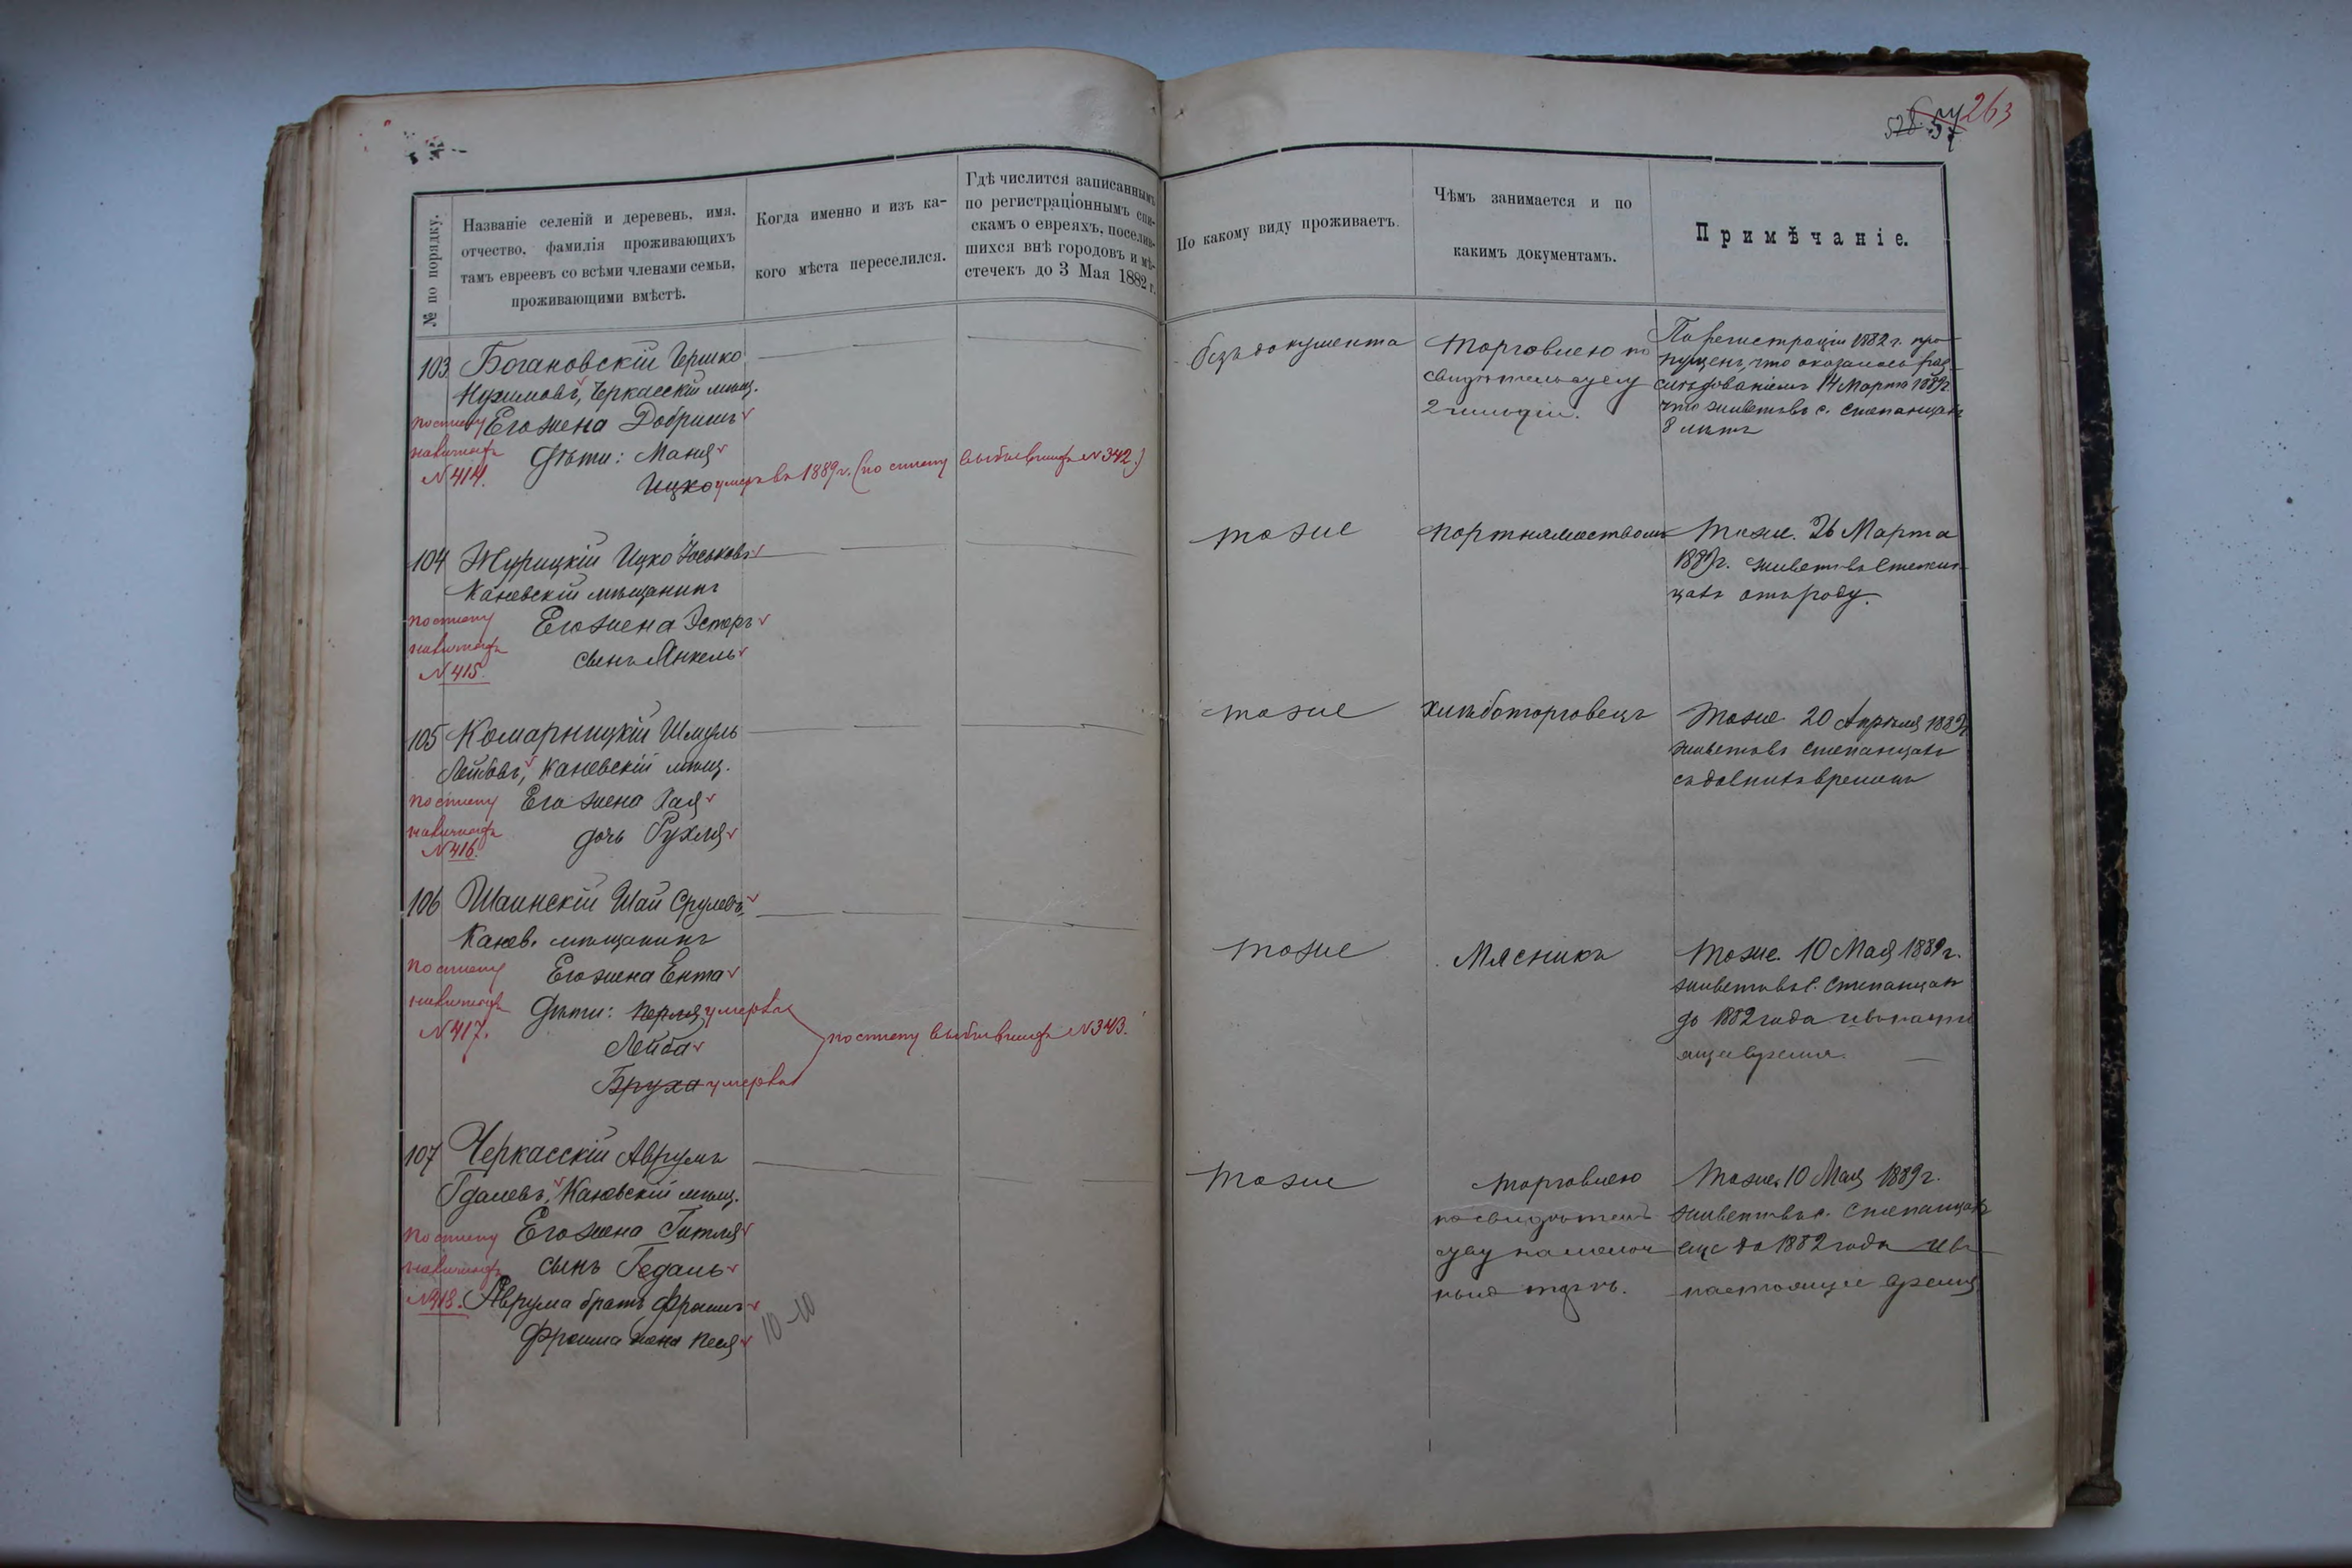 263
№ по порядку.
Названіе селеній и деревень, имя,
отчество, фамилія проживающихъ
тамъ евреевъ со всѣми членами семьи,
проживающими вмѣстѣ.
Когда именно и изъ ка-
кого мѣста переселился.
Гдѣ числится записаннымъ
по регистраціоннымъ спи-
скамъ о евреяхъ, поселив-
шихся внѣ городовъ и мѣ-
стечекъ до 3 Мая 1882 г.
По какому виду проживаетъ.
Чѣмъ занимается и по
какимъ документамъ.
Примѣчаніе.
103 Богановскій Гершко
Нухимовъ, Черкасскій мѣщ.
Его жена Добришъ
Дѣти: Маня
Ицко умеръ въ 1889 г. (по списку выбывшихъ № 342.)
по списку
№ 414.
безъ документа
торговлею по
свидѣтельству
2 гильдіи.
По регистраціи 1882 г. про-
пущенъ, что оказалось раз-
слѣдованіемъ 14 Марта 1889 г.
что живетъ въ с. Степанцахъ
8 лѣтъ
104 Журицкій Ицко Іоськовъ
Каневскій мѣщанинъ
Его жена Эстеръ
сынъ Янкель
по списку
№ 415.
тоже
портняжествомъ
Тоже. 26 Марта
1889 г. живетъ въ Степан-
цахъ отъ роду.
105 Комарницкій Шмуль
Лейбовъ, Каневскій мѣщ.
Его жена Хая
дочь Рухля
по списку
№ 416.
тоже
хлѣботорговецъ
Тоже 20 Апрѣля 1889 г.
живетъ въ Степанцахъ
съ давнихъ временъ
106 Шаинскій Шай Срулевъ,
Канев. мѣщанинъ
Его жена Ента
Дѣти: Перля умерла
Лейба
Бруха умерла
по списку выбывшихъ № 343.
по списку
№ 417.
тоже
Мясникъ
Тоже. 10 Мая 1889 г.
живетъ въ с. Степанцахъ
до 1882 года и въ насто-
ящее время.
107 Черкасскій Аврумъ
Гдалевъ, Каневскій мѣщ.
Его жена Гитля
сынъ Гедаль
Аврума братъ Фроимъ
Фроима жена Песя
по списку
№ 418.
10-10
тоже
торговлею
по свидѣтель-
ству на мелоч-
ной торгъ.
Тоже. 10 Мая 1889 г.
живетъ въ с. Степанцахъ
еще до 1882 года и въ
настоящее время